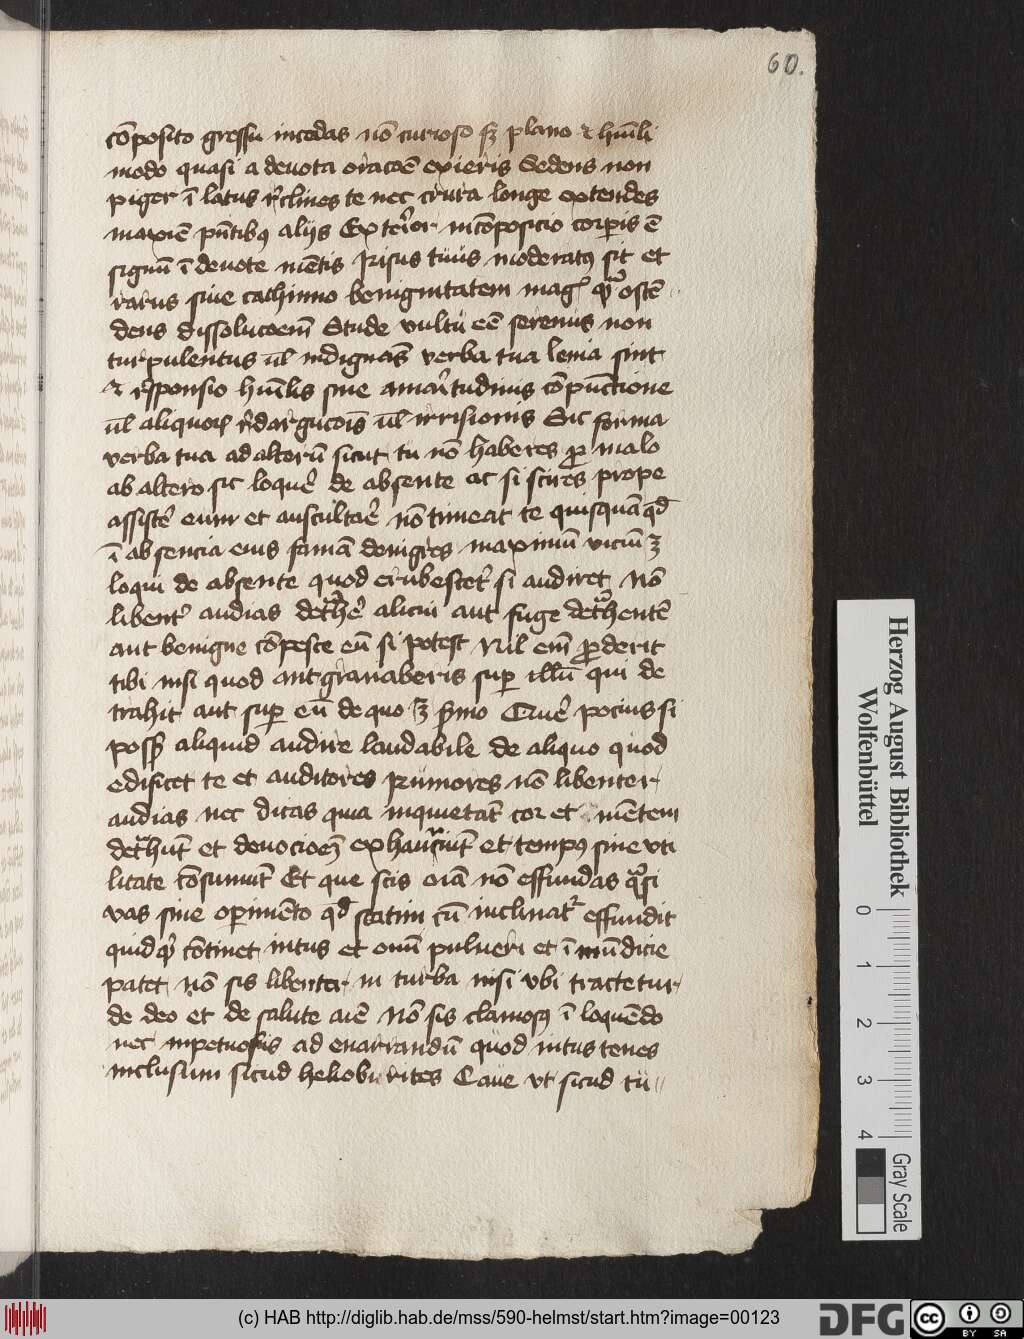 60.
cōposito gressu incedas nō curioso sꝫ plano & hūili
modo quasi a devota oracōe exieris Sedens non
piger ī latus rᵉclines te nec crura longe extendes
maxīe p̄ntibꝯ alijs Exterior incōposicio corꝑis ē
signū ī devote mētis Risus tuus moderatꝯ sit et
rarus sine cachinno benignitatem magꝭ qᵃ ostē
dens dissolucoem̄ Stude vultū eē serenus non
turpulentus ul̄ indignās verba tua lenia sint
& rᵉsponsio hūilis sine amaritudinis cōpunctione
ul̄ aliquoꝝ rᵉdargucōis ul̄ irrisionis Sic forma
verba tua ad alterū sicut tu nō haberes ꝓ malo
ab altero sic loquē de absente ac si scires prope
assistē eum et auscultaē nō timeat te quisquā qd̄
ī absencia eius famā denigres maximū viciū ꝫ
loqui de absente quod erubescēt si audiret Nō
libent̄ audias detᵃhē alicui aut fuge detᵃhentē
aut benigne cōpesce eū si potest Nil em̄ ꝓderit
tibi nisi quod aut gravaberis suꝑ illū qui de
trahit aut suꝑ eū de quo ꝫ s̄mo Quē pocius si
possꝫ aliquid audire laudabile de aliquo quod
edificet te et auditores Rumores nō libenter
audias nec dicas quia inquietāt cor et mētem
detᵃhūt et devocioeꝫ exhauriūt et tempꝯ sine uti
litate cōsumūt Et que scis oīa nō effundas qᵃsi
vas sine operimēto qd̄ statim cū inclinatᵣ effundit
quidqᵈ cōtinet intus et omī pulveri et īmūdicie
patet Nō sis libenter in turba nisi ubi tractetur
de deo et de salute aīe Nō sis clamosꝯ ī loquēdo
nec impetuosus ad enarrandū quod intus tenes
inclusum sicud heliobu rites Cave ut sicud tū
Herzog August Bibliothek
Wolfenbüttel
0 1 2 3 4
Gray Scale
(c) HAB http://diglib.hab.de/mss/590-helmst/start.htm?image=00123
DFG
cc BY SA